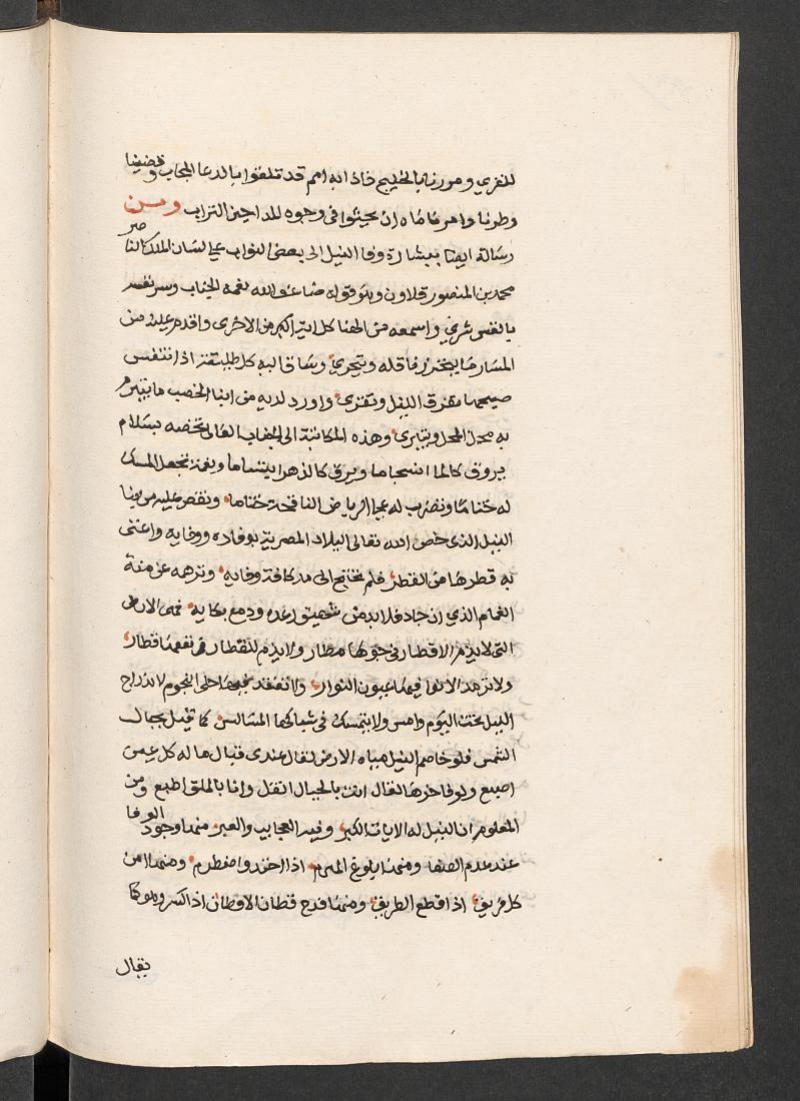 للفري ومررنا بالخليج فاذا به امم قد تلقوا بالدعا المجاب وفضينا
وطرنا وامرنا ماه ان يحثوا في وجوه المداحين التراب ومن
رسالة ايضا ببشارة وفا النيل الى بعض النواب على لسان الملك الناصر
محمد بن المنصور قلاون وبتوقيع ضاعف الله نعمة الجناب وسر نفسه
بانفس بشري واسمعه من الهنا كل اية اكبر من الاخرى واقدم عليه من
المسار ما يتحرز ناقله ويتحرى وساق اليه كل طليعة اذا تنفس
صبحها تفرق الليل وتفرى واورد لديه من ابنا الخصب ما يتبرم
به محل المحل ويتبرى وهذه المكاتبة الى الجناب العالي تخصه بسلام
يروق كالما انسجاما ويرق كالزهر ابتساما وتحية تجعل المسك
له ختاما وتضرب له على الرياض النافحة خياما وتقص عليه من نبا
النيل الذي خص الله تعالى البلاد المصرية بوفادة ووفايه واغنى
به قطرها من القطر فلم تحتج الى مد كافة وفايه ونزهه عن منة
الغمام الذي ان جاد فلا بد من شهيق رعده ودمع بكايه فهي الارض
التي لا يذم الاقطار في جوها مطار ولا يذم للقطار في نقعها قطار
ولا ترمد الانوا فيها عيون النوار ولا تفقد نجومها
الليل تحت اليوم وامس ولا يتمسك في شباكها المسا لسن كما قيل بحبال
الشمس فلو خاصم النيل مياه الارض لقال عندي قبالها له كل عين
اصبع ولو فاخرها لقال انت بالجبال اثقل وانا بالملق اطبع ومن
المعلوم ان النيل له الايات الكبر وفيه العجايب والعبر منها وجود الوفا
عند عدم الصفا ومنها بلوغ الهرم اذا احتد واضطرم ومنها امن
كل فريق اذا قطع الطريق ومنها فرح قطان الاوطان اذا كسر وهو كما
يقال